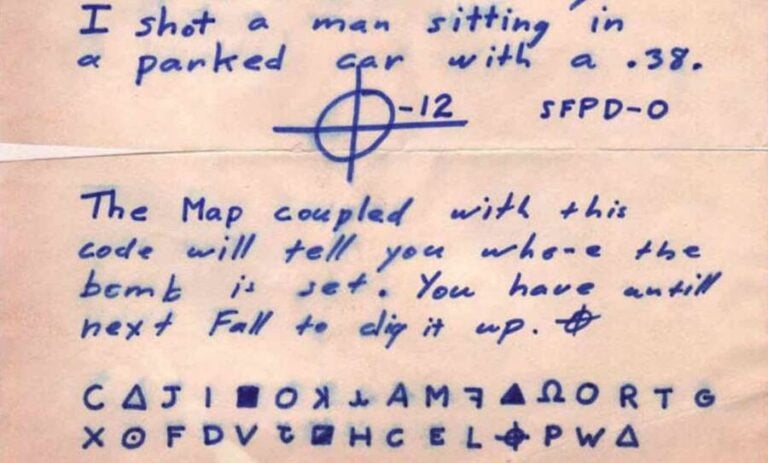 I shot a man sitting in
a parked car with a .38.
-12 SFPD-0
The Map coupled with this
code will tell you where the
bomb is set. You have untill
next Fall to dig it up. ⌖
C Δ J I ■ O ꓘ ⅄ A M ꟻ ▲ Ω O R T G
X ⊙ F D V ⴠ ◪ H C E L ⌖ P W Δ